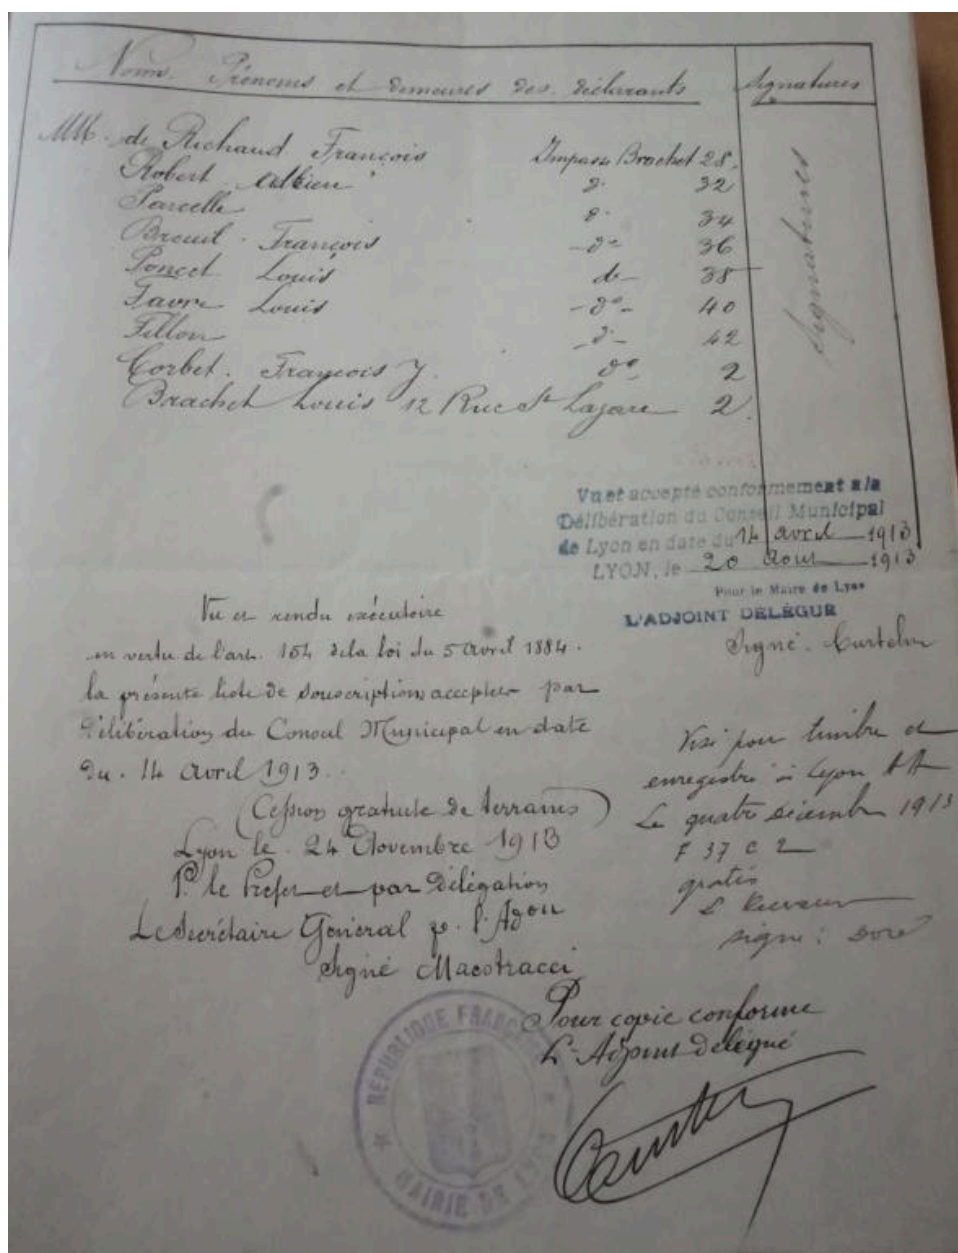 Noms. Prénoms et demeures des déclarants
Signatures
MM. de Richaud François Impasse Brachet 28.
Robert 32
Parcelle d° 34
Breuil. François - d° 36
Poncet Louis do - 38
Favre Louis - d° - 40
Fillon - d° 42
Corbet. François J. d° 2
Brachet Louis 12 Rue St Lazare 2.
Signatures
Vu et accepté conformement à la
Délibération du Conseil Municipal
de Lyon en date du 14 avril 1913
LYON, le 20 Aout 1913
Pour le Maire de Lyon
L'ADJOINT DÉLÉGUÉ
Signé.
Vu et rendu exécutoire
en vertu de l'art. 154 de la loi du 5 avril 1884.
la présente liste de souscriptions acceptée par
délibération du Conseil Municipal en date
du. 14 avril 1913.
(Cession gratuite de terrains)
Lyon le. 24 Novembre 1913
P. le Préfet et par Délégation
Le Secrétaire Général
Signé
Visé pour timbre et
enregistré à Lyon
Le quatre décembre 1913
F 37 C 2
gratis
Le Receveur
signé: Doré
Pour copie conforme
L'Adjoint délégué
RÉPUBLIQUE FRANÇAISE
MAIRIE DE LYON